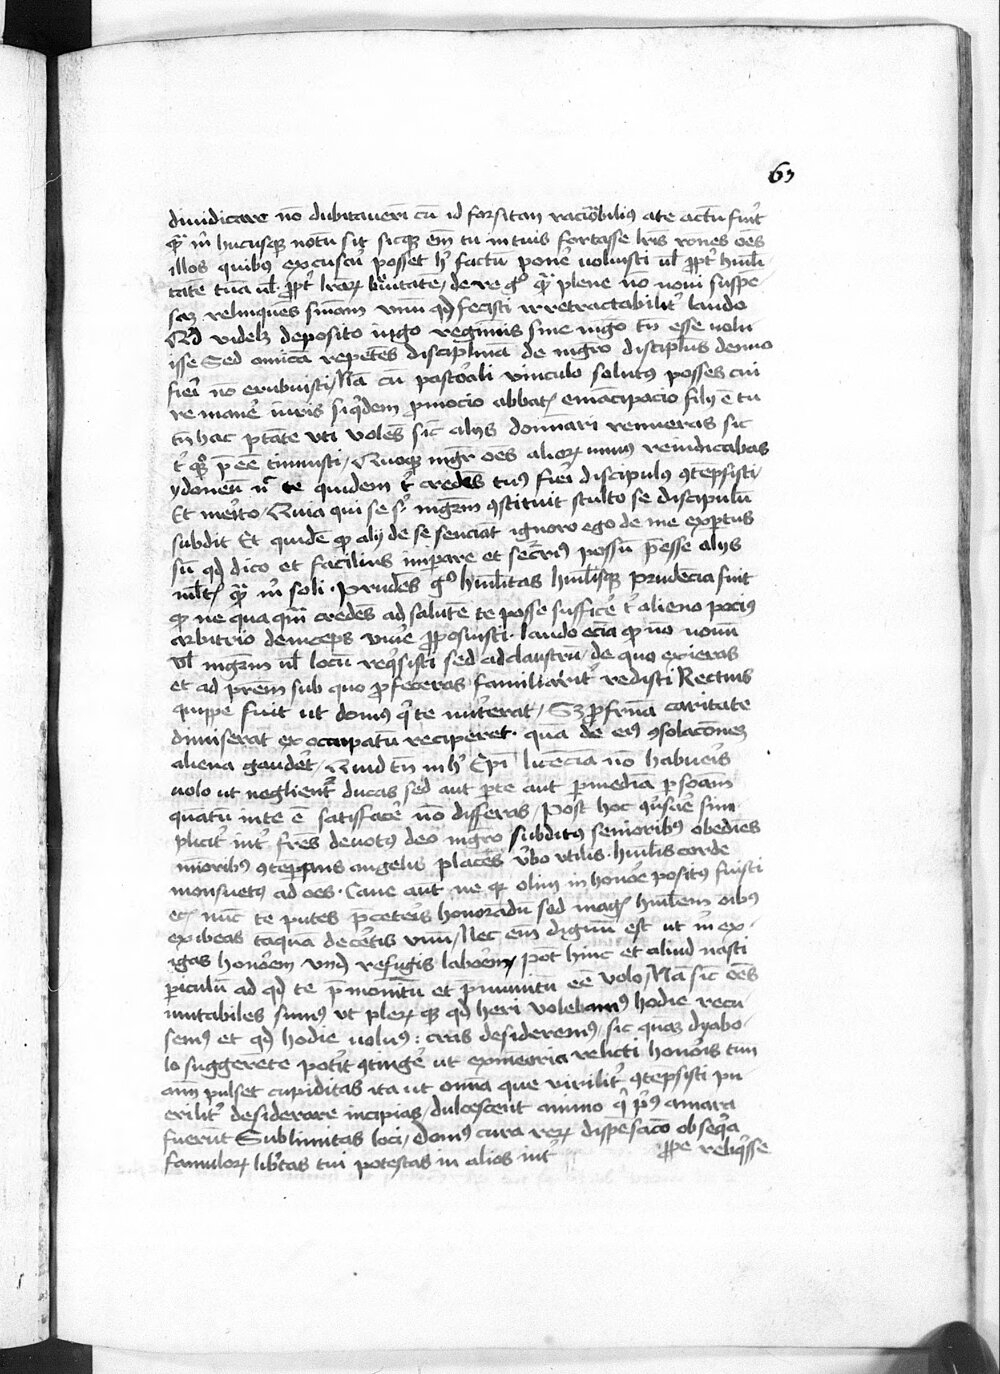 63
diiudicare nō dubitauerī cū id forsitan raciōbiliꝰ a te actū fuīt
qᵃ m̄ hucusqꝫ notū sit sicqꝫ em̄ tu in tuis fortasse lr̄is rōnes oēs
illos quibꝰ excusaʳi posset h̓ factū poneʳ uoluisti ul̓ ꝓpt̓ humili
tatē tuā ul̓ ꝓpt̓ lraꝝ breuitatē / de re gͦ qᵃ plene nō noui suspe
sam relinques sniam vnū qd̓ fecisti irretractabilit̓ laudo
Qd̓ videlꝫ deposito iugo regiminis sine mgr̄o tn̄ esse nolu
isse Sed amicā repetēs disciplinā de mgr̄o discipl̓us denuo
fieri nō erubuisti / Nā cū pastorali vinculo solutꝰ posses tui
re maneʳ iuris siqͥdem ꝓmocio abbatꝭ emācipacio filij ē tu
tn̄ hac ptāte vti volēs sic alijs donnari renueras sic
t̓ qᵒqꝫ p̄ eē timuisti / Quoqꝫ mgr̄ oēs alioꝝ munus reiudicabas
ydoneū nͨ te quidem t̓ credēs tuꝰ fieri discipulꝰ ꝯtēpsisti
Et merito / Quia qui se sͥ mgr̄m ꝯstituit stulto se discipulū
subdit Et quidē qͥ alij de se senciāt ignoro ego de me expertus
sū qd̓ dico et facilius imperare et secͥriꝰ possū p̄esse alijs
ml̓tꝭ qᵃ m̄ soli · Prudēs gͦ humilitas humilisqꝫ prudēcia fuit
qͥ ne quaqᵃm credēs ad salutē te posse sufficeʳ t̓ alieno pociꝰ
arbitrio deinceps viueʳ ꝓposuisti · laudo eciā qͥ nō nouū
ul̓ mgr̄m ul̓ locū reqͥsisti sed ad claustrū / de quo exieras
et ad prēm sub quo ꝓfeceras familiarit̓ redisti Rectius
quippe fuit ut domꝰ qͥ te nut̓erat / Sꝫ ꝓ fr̄na caritate
dimiserat ex occupatū reciperet · quā de eiꝰ ꝯsolacōnem
aliena gaudēt / Quid tn̄ in h̓ Ep̄i licenciā nō habueris
nolo ut neglient̓ ducas sed aut per te aut per mediā ꝑsonam
quātū in te ē satisfaceʳ nō differas / Post hoc ꝯuersaʳe sim
plicit̓ int̓ fr̄es deuotus deo mgr̄o subditꝰ senioribꝰ obediēs
iunioribꝰ ꝯtempans angelis placēs v̓bo vtilis · humilis corde
mansuetꝰ ad oēs · Caue aut̄ ne qͥ olim in honore positꝰ fuisti
eciā nūc te putes p̄ ceteris honorādū sed magꝭ humilem oībꝰ
exibeas taquā de cetis vnū / Nec em̄ dignū est ut m̄ ex
igas honorem vnd̓ refugis laborem / Pōt hinc et aliud nasti
ꝑiculū ad qd̓ te p̄monitū et p̄munitū eē volo / Nā sic oēs
mutabiles sumꝰ ut pleꝝqꝫ qd̓ heri volebamꝰ hodie recu
semꝰ et qd̓ hodie nolumꝰ : cras desideremꝰ / sic quāqꝫ dyabo
lo suggerēte pot̓it ꝯtingeʳ ut ex memoria relicti honoris tuū
animū pulset cupiditas ita ut omia que virilit̓ ꝯtēpsisti pu
erilit̓ desiderare incipias / dulcescent animo qͥ pͥꝰ amara
fuerūt Sublimitas loci / domꝰ cura reꝝ dispēsacō obseqͥa
famuloꝝ lib̓tas tui potestas in alios int̓ ꝓpe reliqͥsse